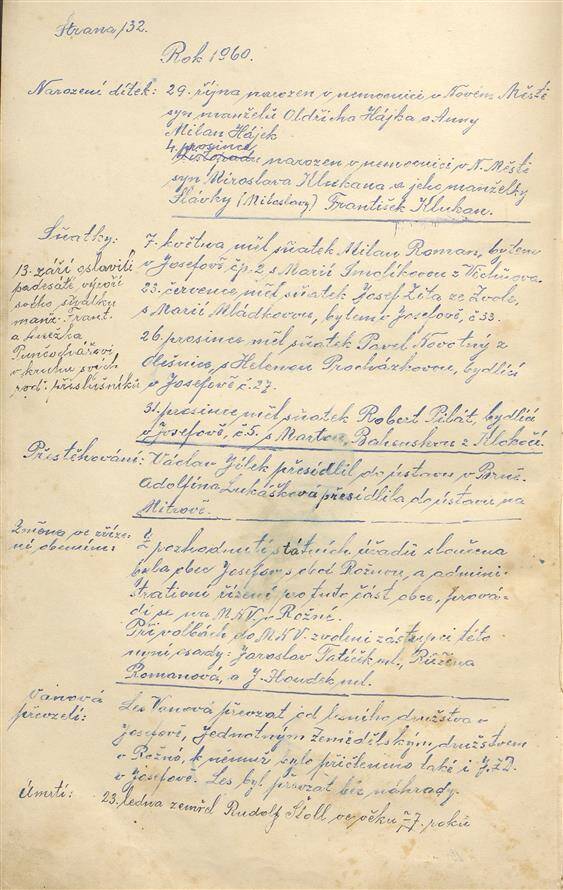 Strana 132.
Rok 1960.
Narození dítek: 29. října narozen v nemocnici v Novém Městě
syn manželů Oldřicha Hájka a Anny
Milan Hájek
4. prosince
listopadu narozen v nemocnici v N. Městě
syn Miroslava Klukana a jeho manželky
Slávky (Miloslavy) František Klukan.
Sňatky:
7. května měl sňatek Milan Roman, bytem
v Josefově čp. 2 s Marií Smolíkovou z Věchnova.
23. července měl sňatek Josef Žita ze Zvole,
s Marií Mládkovou, bytem v Josefově, č. 33.
26. prosince měl sňatek Pavel Novotný z
Olešnice, s Helenou Procházkovou, bydlící
v Josefově č. 27.
31. prosince měl sňatek Robert Pilát, bydlící
v Josefově, č. 5. s Martou, z Klokočí.
13. září oslavili
padesáté výročí
svého sňatku
manž. Frant.
a Anežka
Punčochářovi
v kruhu svých
rod. příslušníků
Přestěhování: Václav Jílek přesídlil do ústavu v Brně.
Adolfína Lukášková přesídlila do ústavu na
Mitrově.
Změna ve zříze-
ní obecním:
Z rozhodnutí státních úřadů sloučena
byla obec Josefov s obcí Rožnou, a admini-
strativní řízení pro tuto část obce, prová-
dí se na MNV. v Rožné.
Při volbách do MNV. zvoleni zástupci této
nyní osady: Jaroslav Tatíček ml., Růžena
Romanová, a J. Houdek, ml.
Vanová
převzetí:
Les Vanová převzat od lesního družstva v
Josefově, Jednotným zemědělským družstvem
v Rožné, k němuž bylo přičleněno také i J.Z.D.
v Josefově. Les byl převzat bez náhrady.
Úmrtí: 23. ledna zemřel Rudolf Štoll ve věku 77 roků